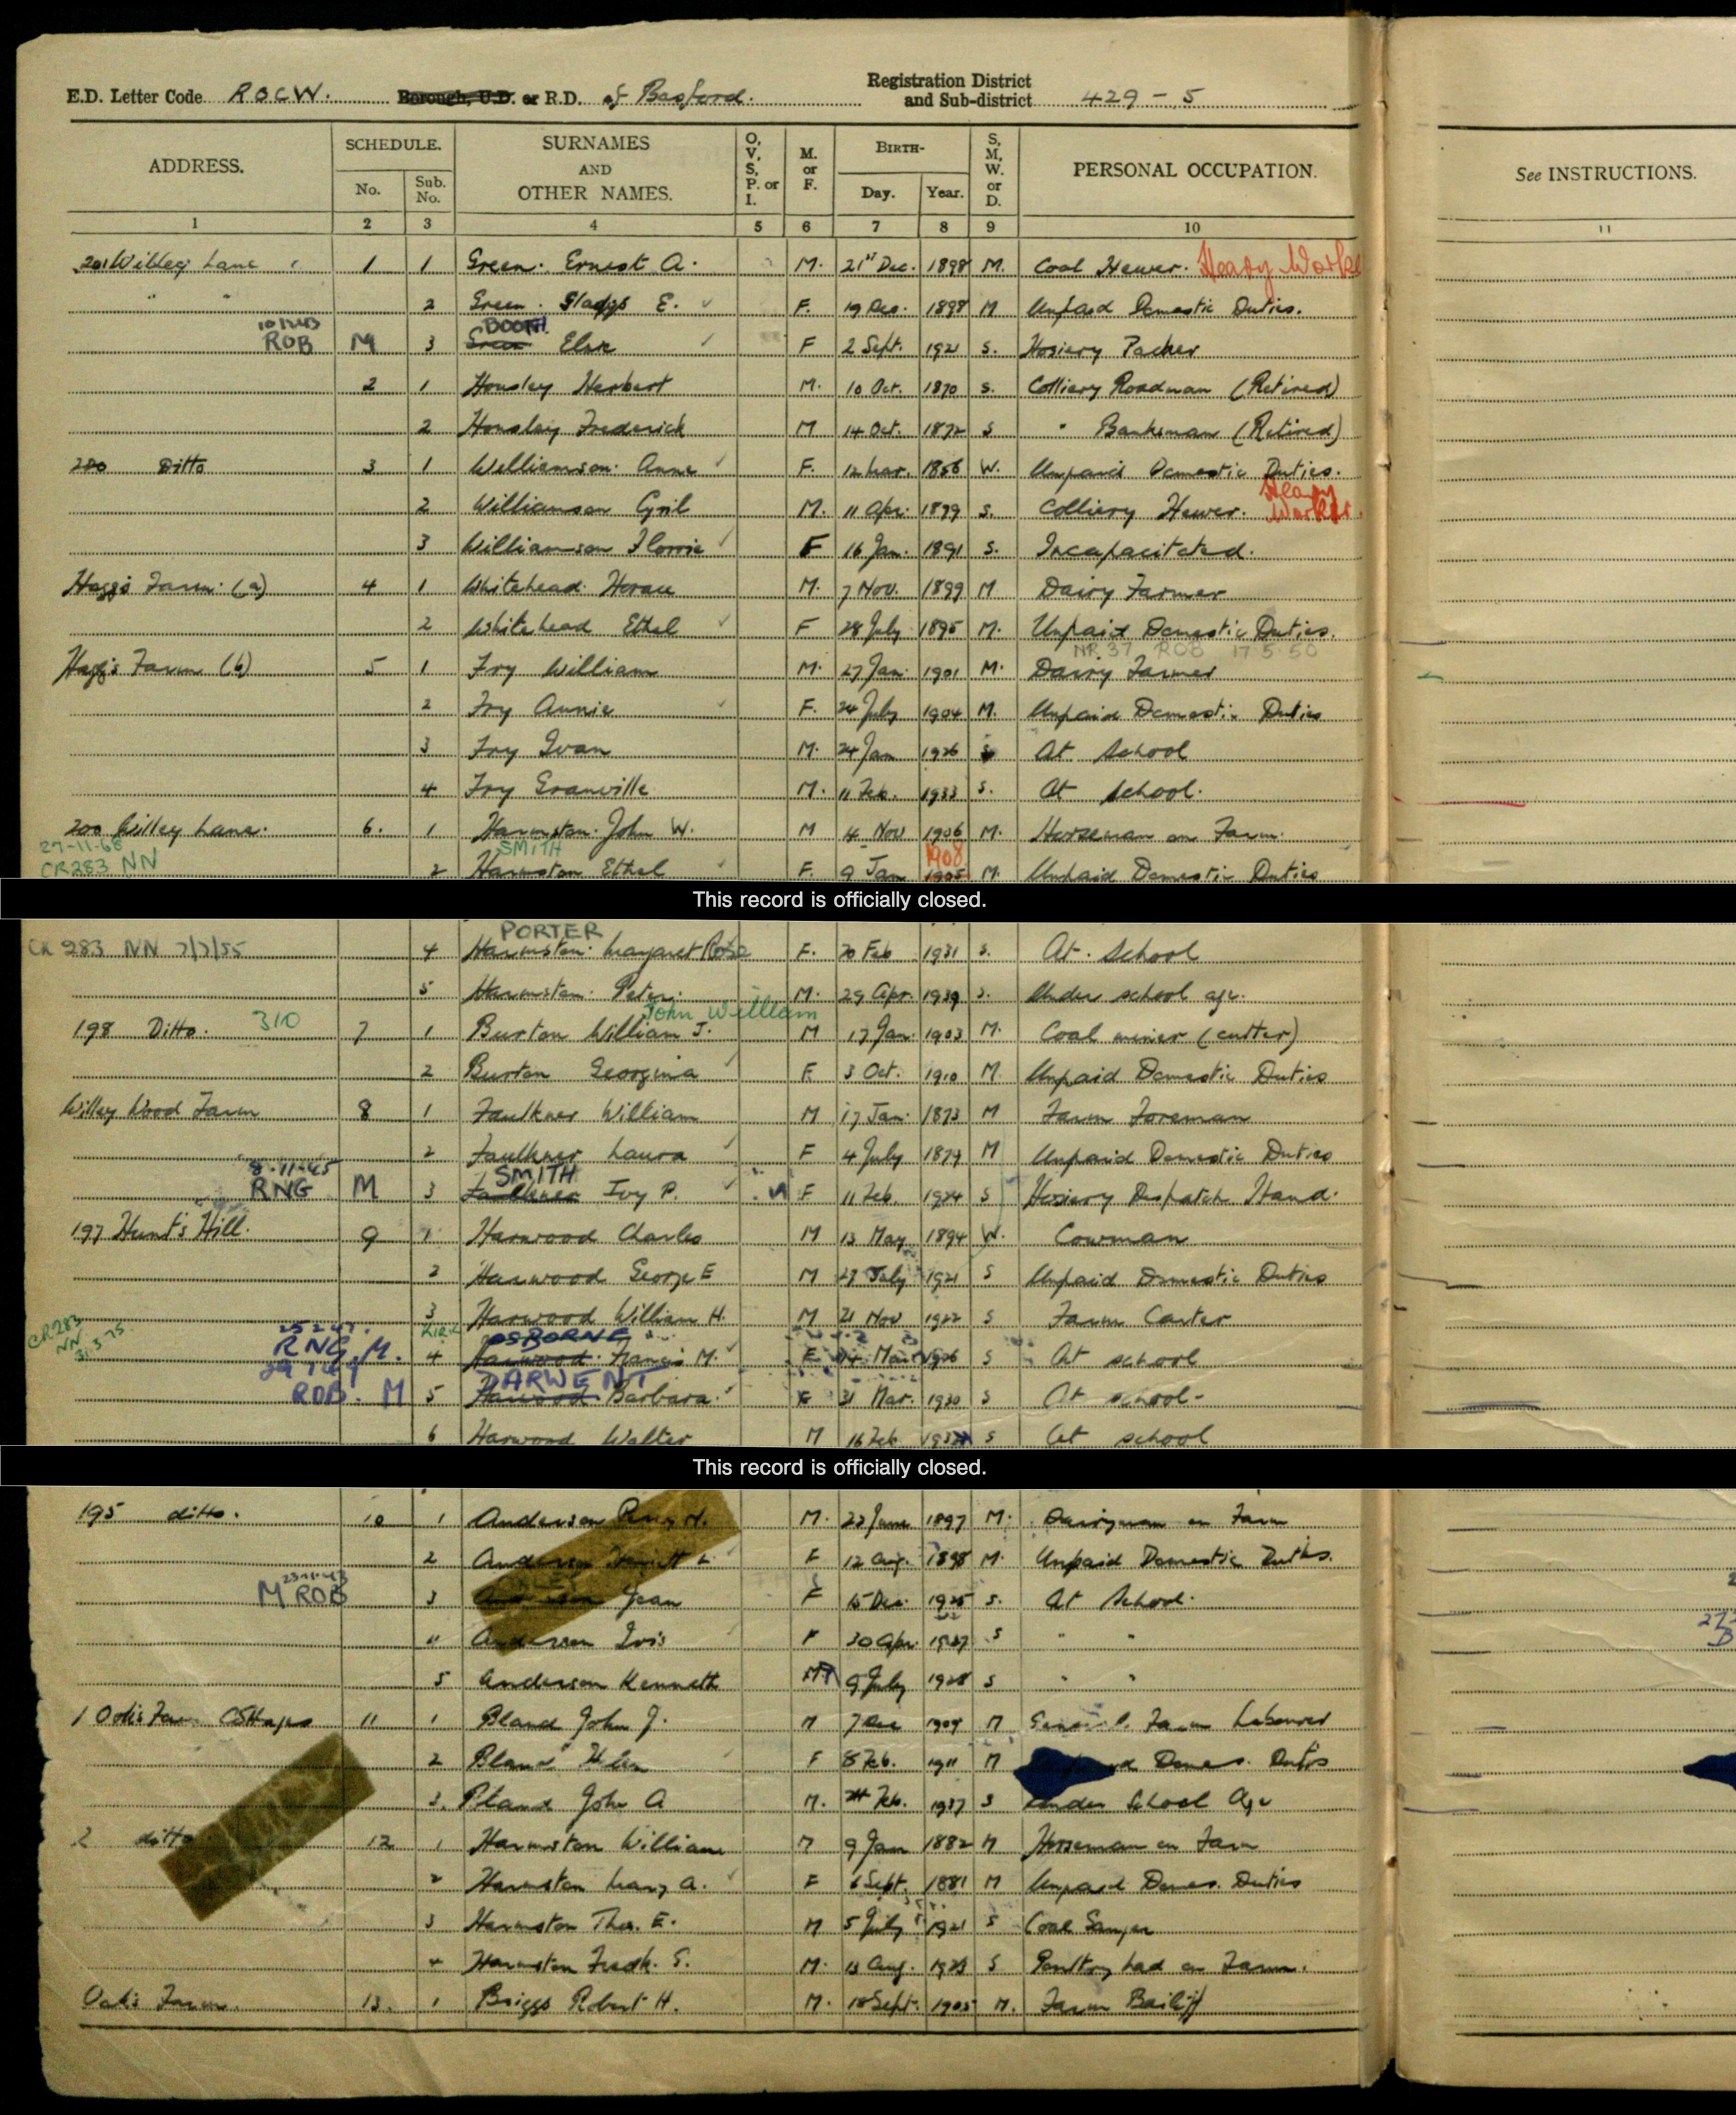 E.D. Letter Code ROCW. Borough, U.D. or R.D. of Basford. Registration District and Sub-district 429 - 5
ADDRESS. SCHEDULE. No. Sub. No. SURNAMES AND OTHER NAMES. O, V, S, P. or I. M. or F. BIRTH- Day. Year. S, M, W. or D. PERSONAL OCCUPATION. See INSTRUCTIONS.
1 2 3 4 5 6 7 8 9 10 11
201 Willey Lane 1 1 Green. Ernest A. M. 21st Dec. 1898 M. Coal Hewer. Heavy Worker
" " 2 Green. Gladys E. F. 19 Dec. 1898 M Unpaid Domestic Duties.
ROB M 3 Green BOOTH Elsie F 2 Sept. 1921 S. Hosiery Packer
2 1 Housley Herbert M. 10 Oct. 1870 S. Colliery Roadman (Retired)
2 Housley Frederick M 14 Oct. 1872 S " Banksman (Retired)
200 Ditto 3 1 Williamson. Anne F. 12 Mar. 1856 W. Unpaid Domestic Duties.
2 Williamson Cyril M. 11 Apr. 1899 S. Colliery Hewer. Heavy Worker
3 Williamson Florrie F 16 Jan. 1891 S. Incapacitated.
Haggs Farm (a) 4 1 Whitehead Horace M. 7 Nov. 1899 M Dairy Farmer
2 Whitehead Ethel F 28 July 1895 M. Unpaid Domestic Duties.
NR 37 ROB 17.5.50
Haggs Farm (b) 5 1 Fry William M. 27 Jan 1901 M. Dairy Farmer
2 Fry Annie F. 24 July 1904 M. Unpaid Domestic Duties
3 Fry Ivan M. 24 Jan 1926 S At School
4 Fry Granville M. 11 Feb. 1933 S. At school.
200 Willey Lane. 6. 1 Harmston. John W. M 4 Nov 1906 M. Horseman on Farm.
27-11-68
CR283 NN 2 Harmston SMITH Ethel F. 9 Jan 1905 1908 M. Unpaid Domestic Duties
This record is officially closed.
CR 283 NN 7/7/55 4 Harmston. PORTER Margaret Rose F. 20 Feb 1931 S. At School
5 Harmston. Peter. M. 29 Apr. 1939 S. Under school age.
198 Ditto. 310 7 1 Burton William J. John William M 17 Jan. 1903 M. Coal miner (cutter)
2 Burton Georgina F. 3 Oct. 1910 M Unpaid Domestic Duties
Willey Wood Farm 8 1 Faulkner William M 17 Jan. 1873 M Farm Foreman
2 Faulkner Laura F 4 July 1879 M Unpaid Domestic Duties
8-11-45
RNG M 3 Faulkner SMITH Ivy P. F 11 Feb. 1924 S Hosiery Despatch Hand.
197 Hunt's Hill. 9 1 Harwood Charles M 13 May 1894 W. Cowman
2 Harwood George E M 29 July 1921 S Unpaid Domestic Duties
3 Harwood William H. M 21 Nov 1922 S Farm Carter
CR283 NN 31.3.75. RNG. M. 4 Harwood KIRK OSBORNE Francis M. F 14 Mar 1926 S At school
ROB. M 5 Harwood DARWENT Barbara. F 31 Mar. 1930 S At school
6 Harwood Walter M 16 Feb S At school
This record is officially closed.
195 ditto. 10 1 Anderson Percy H. M. 1897 M. Dairyman on Farm
2 Anderson Harriett L. F 12 Aug. 1898 M. Unpaid Domestic Duties.
M ROB 3 Jean F 15 Dec. 1925 S. At School.
4 Anderson Iris F 30 Apr. 1927 S " "
5 Anderson Kenneth M 9 July 1928 S " "
1 Farm Cottages 11 1 Bland John J. M 7 Dec 1909 M General Farm Labourer
2 Bland Helen F 8 Feb. 1911 M Domes. Duties
3. Bland John A M. 24 Feb. 1937 S Under School Age
2 ditto 12 1 Harmston William M 9 Jan 1882 M Horseman on Farm
2 Harmston Mary A. F 6 Sept. 1881 M Unpaid Domes. Duties
3 Harmston Thos. E. M 5 July 1921 S Coal
4 Harmston Fredk. G. M. 13 Aug. S Poultry lad on Farm.
Oaks Farm. 13. 1 Briggs Robert H. M. 18 Sept. 1905 M. Farm Bailiff